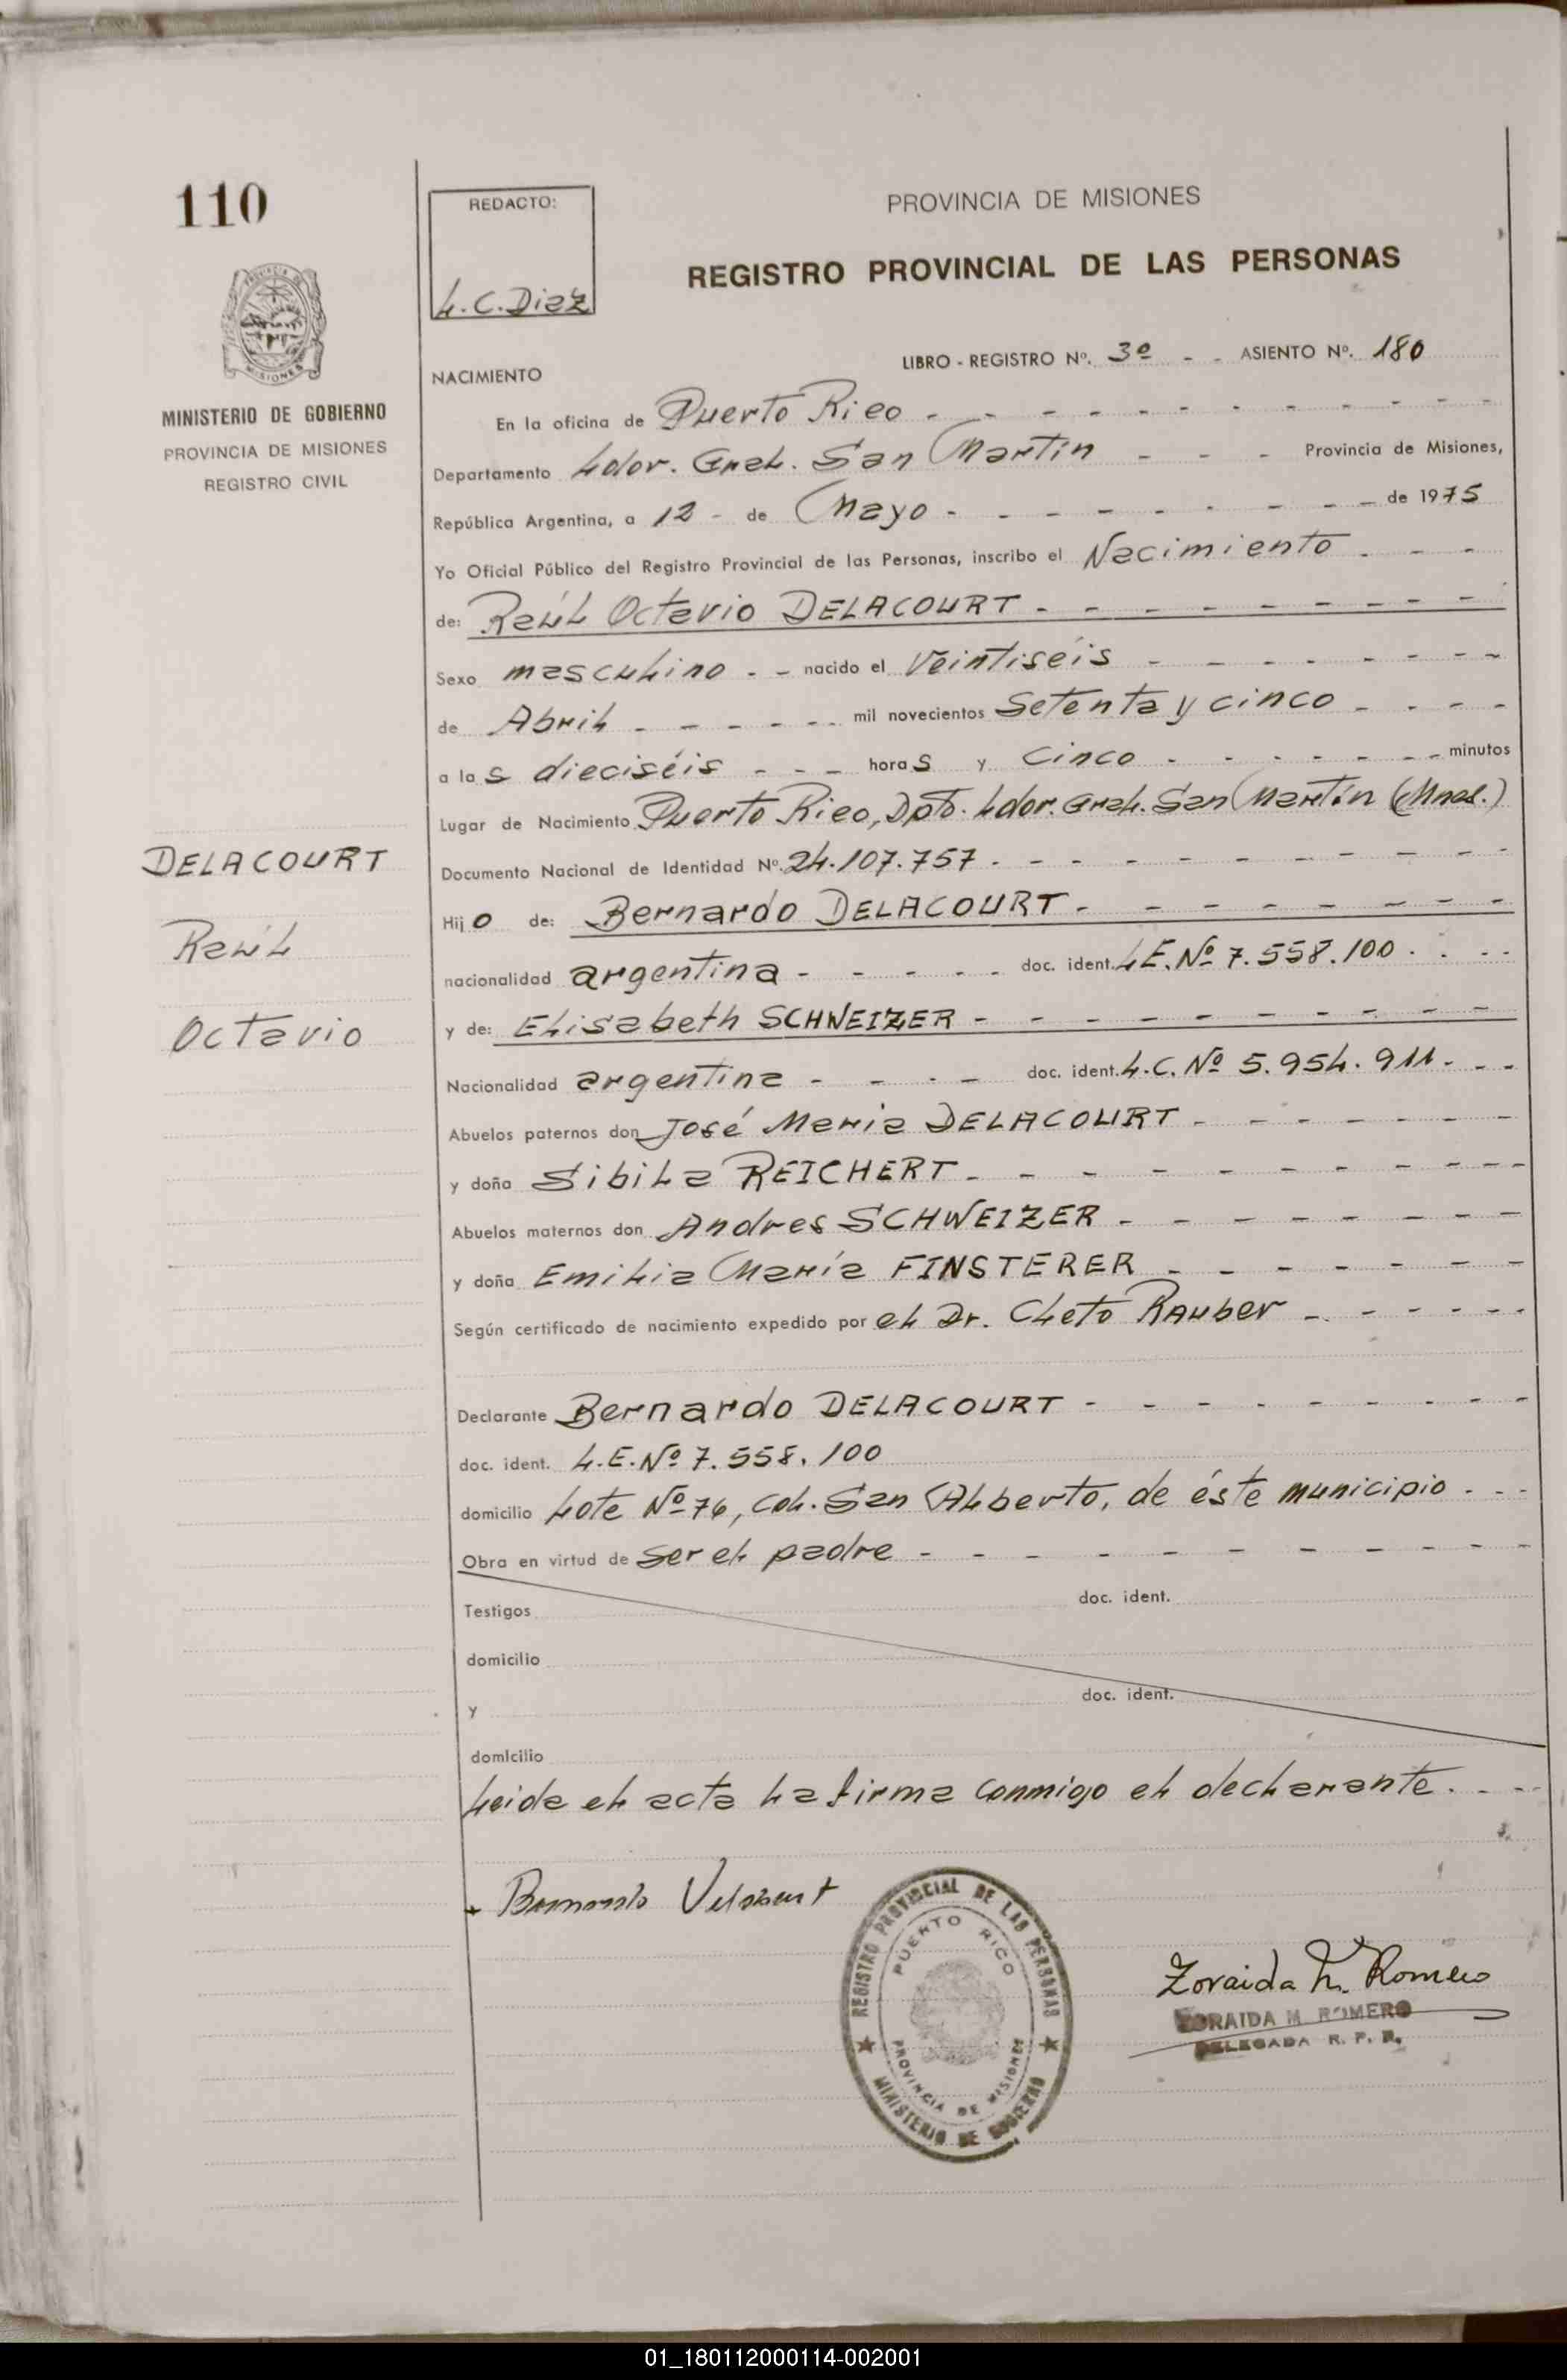 110
REDACTO:
L.C. Diaz
PROVINCIA DE MISIONES
REGISTRO PROVINCIAL DE LAS PERSONAS
PROVINCIA DE MISIONES
MINISTERIO DE GOBIERNO
PROVINCIA DE MISIONES
REGISTRO CIVIL
LIBRO - REGISTRO Nº. 3º - - ASIENTO Nº. 180
NACIMIENTO
En la oficina de Puerto Rico - - - - - - - - - - -
Departamento Ldor. Gral. San Martín - - - Provincia de Misiones,
República Argentina, a 12 - de Mayo - - - - - - - - de 1975
Yo Oficial Público del Registro Provincial de las Personas, inscribo el Nacimiento - - -
de: Raúl Octavio DELACOURT - - - - - - - -
Sexo masculino - - nacido el Veintiséis - - - - - - - -
de Abril - - - - - - mil novecientos Setenta y cinco - - - -
a las dieciséis - - - horas y Cinco - - - - - - minutos
Lugar de Nacimiento Puerto Rico, Dpto. Ldor. Gral. San Martín (Mnes.)
Documento Nacional de Identidad Nº. 24.107.757 - - - - - - - - - -
Hijo de: Bernardo DELACOURT - - - - - - - -
nacionalidad argentina - - - - - doc. ident. L.E. Nº 7.558.100 - - - -
y de: Elisabeth SCHWEIZER - - - - - - - - - -
Nacionalidad argentina - - - - doc. ident. L.C. Nº 5.954.911 - - -
Abuelos paternos don José Maria DELACOURT - - - - - - -
y doña Sibila REICHERT - - - - - - - - - - -
Abuelos maternos don Andres SCHWEIZER - - - - - - - -
y doña Emilia María FINSTERER - - - - - - -
Según certificado de nacimiento expedido por el Dr. Cleto RAuber - - - - - -
Declarante Bernardo DELACOURT - - - - - - - - -
doc. ident. L.E. Nº 7.558.100
domicilio Lote Nº 76, Col. San Alberto, de éste municipio - - -
Obra en virtud de ser el padre - - - - - - - - - - -
Testigos doc. ident.
domicilio
y doc. ident.
domicilio
Leida el acta la firma conmigo el declarante. - - -
DELACOURT
Raúl
Octavio
REGISTRO PROVINCIAL DE LAS PERSONAS
PUERTO RICO
PROVINCIA DE MISIONES
MINISTERIO DE GOBIERNO
Zoraida M. Romero
ZORAIDA M. ROMERO
DELEGADA R. P. P.
01_180112000114-002001